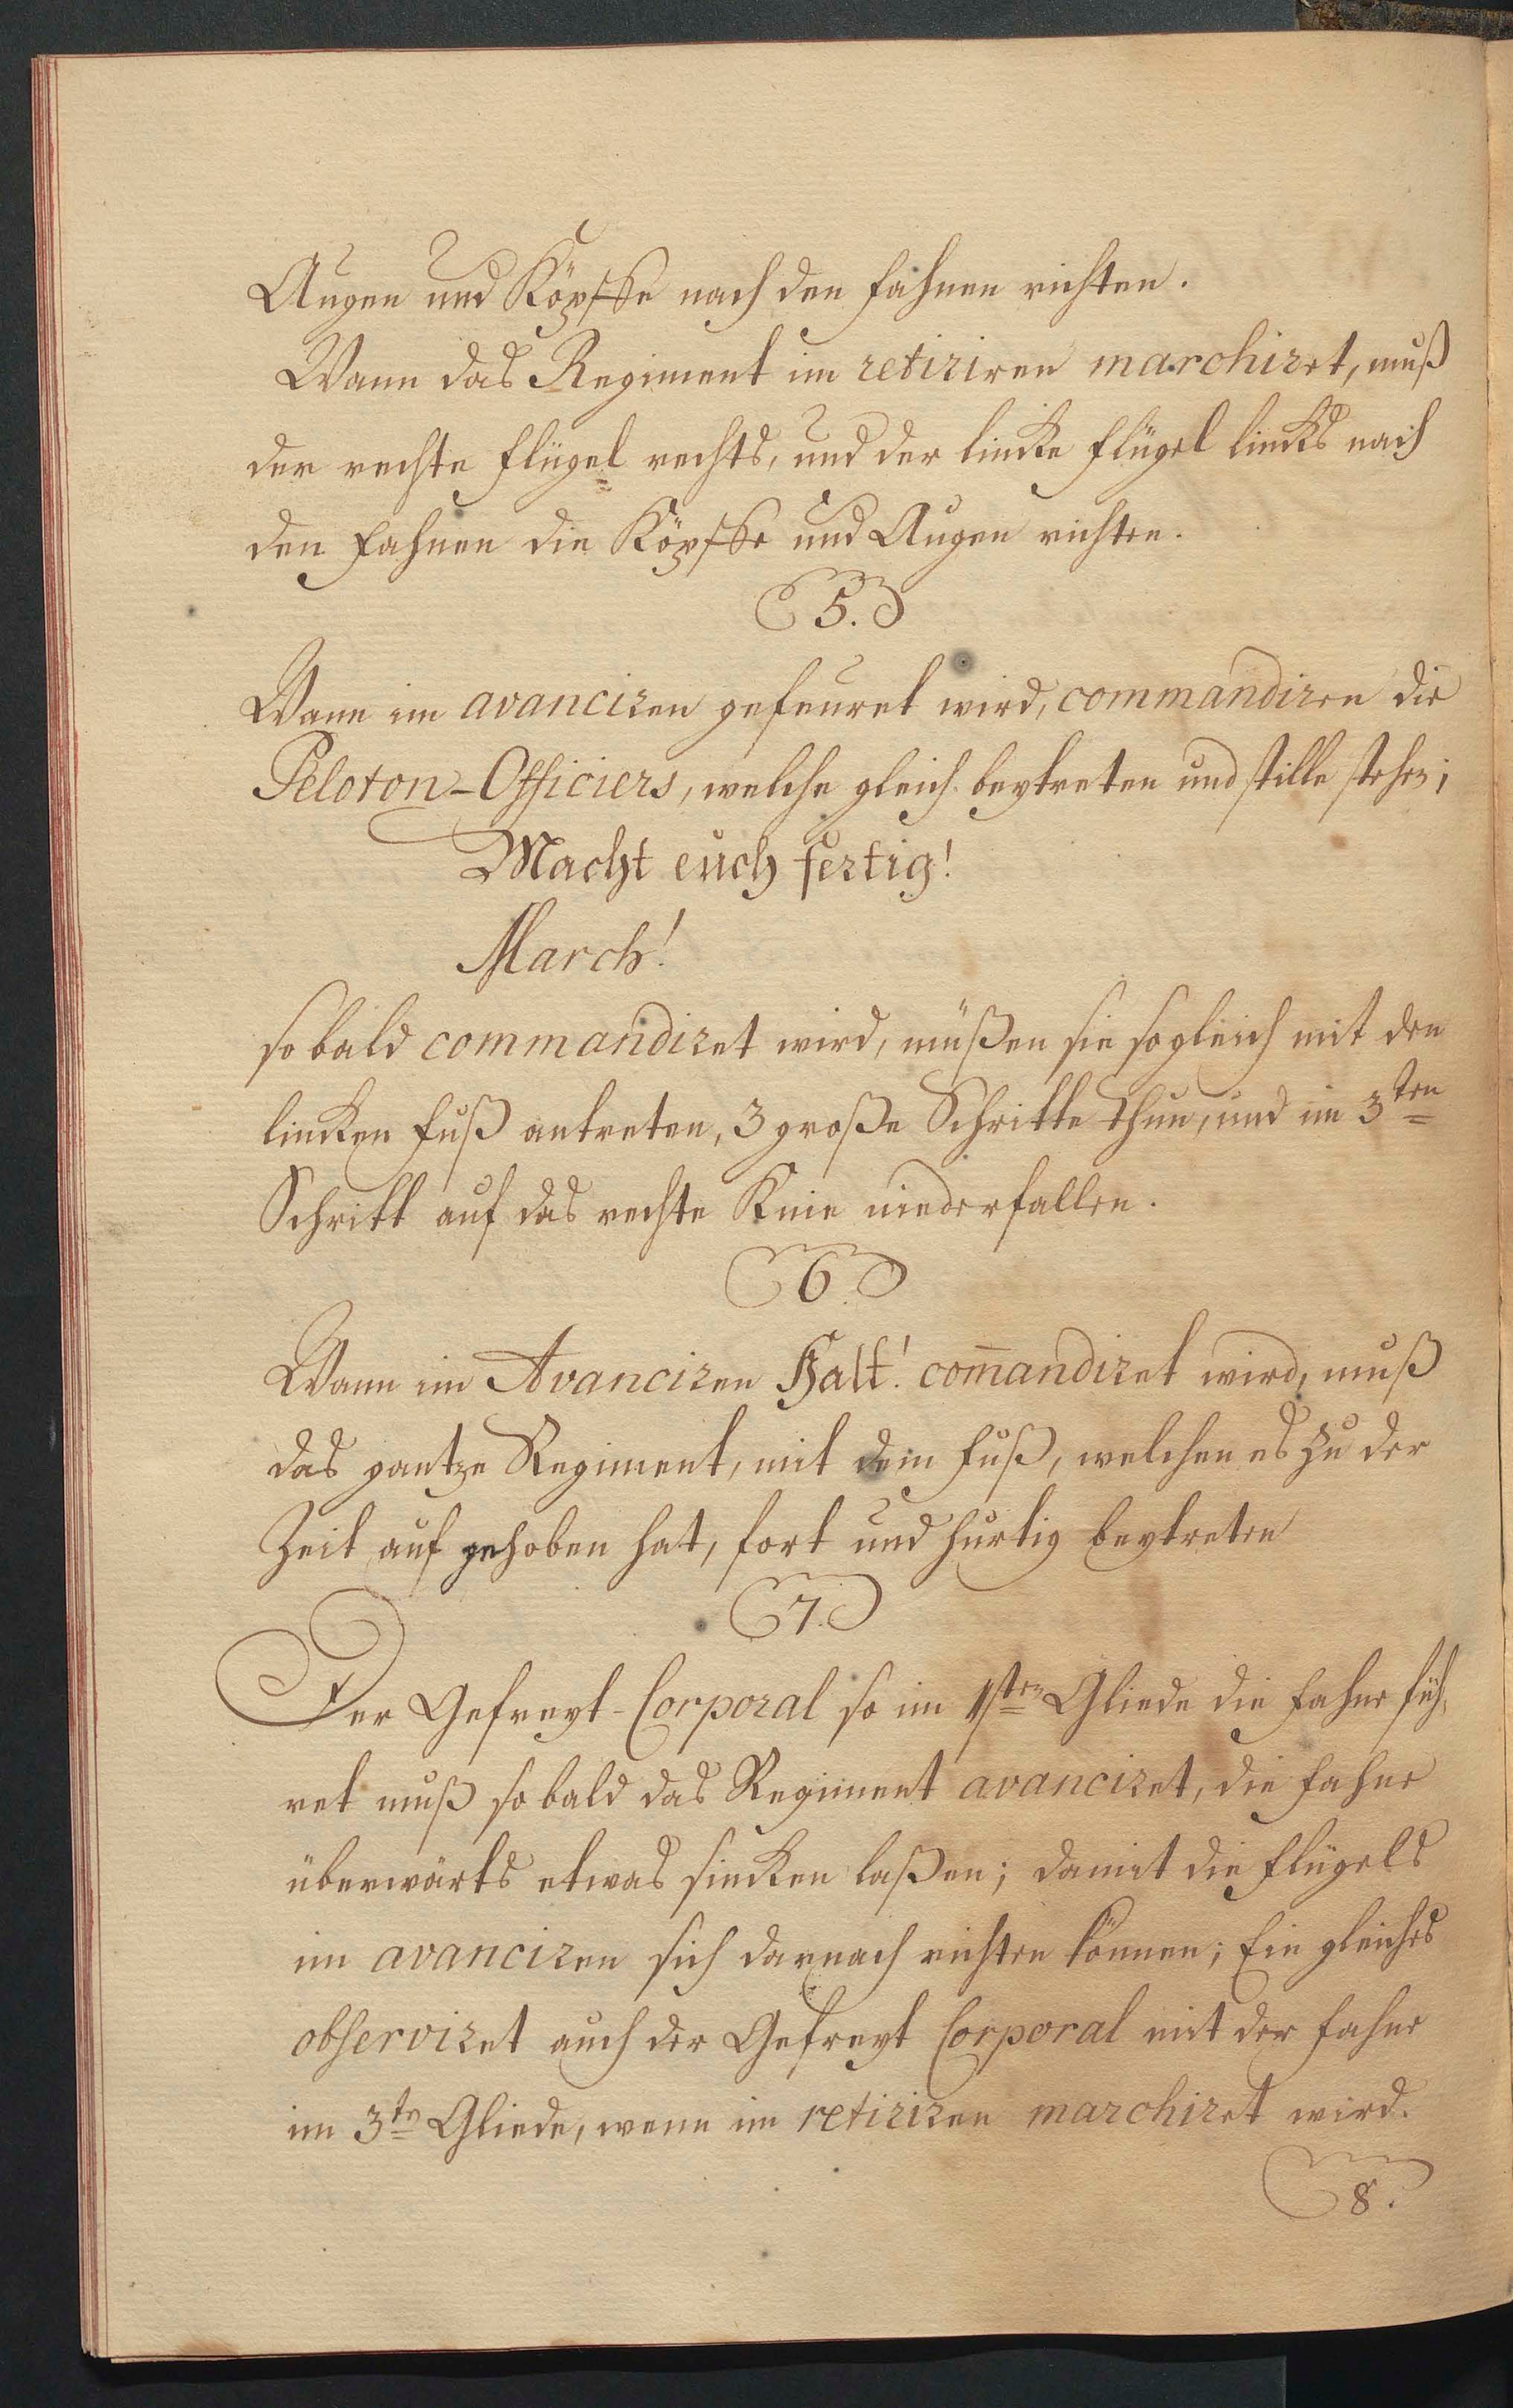 Augen und Köpffe nach den Fahnen richten.
Wann das Regiment im retiriren marchiret, muß
der rechte Flügel rechts, und der lincke Flügel lincks nach
den Fahnen die Köpffe und Augen richten.
5.
Wann im avanciren gefeuret wird, commandiren die
Peloton-Officiers, welche gleich beytreten und stille stehen;
Macht euch fertig!
March!
so bald commandiret wird, müßen sie sogleich mit den
lincken Fuß antreten, 3 große Schritte thun, und im 3ten
Schritt auf das rechte Knie niederfallen.
6.
Wann im Avanciren Halt! com̄andiret wird, muß
das gantze Regiment, mit dem Fuß, welchen es zu der
Zeit auf gehoben hat, fort und hurtig beytreten
7.
Der Gefreyt-Corporal so im 1sten Gliede die Fahne füh,
ret muß so bald das Regiment avanciret, die Fahne
überwärts etwas sincken laßen; damit die Flügels
im avanciren sich darnach richten können; Ein gleiches
observiret auch der Gefreyt Corporal mit der Fahne
im 3tn Gliede, wenn im retiriren marchiret wird.
8.